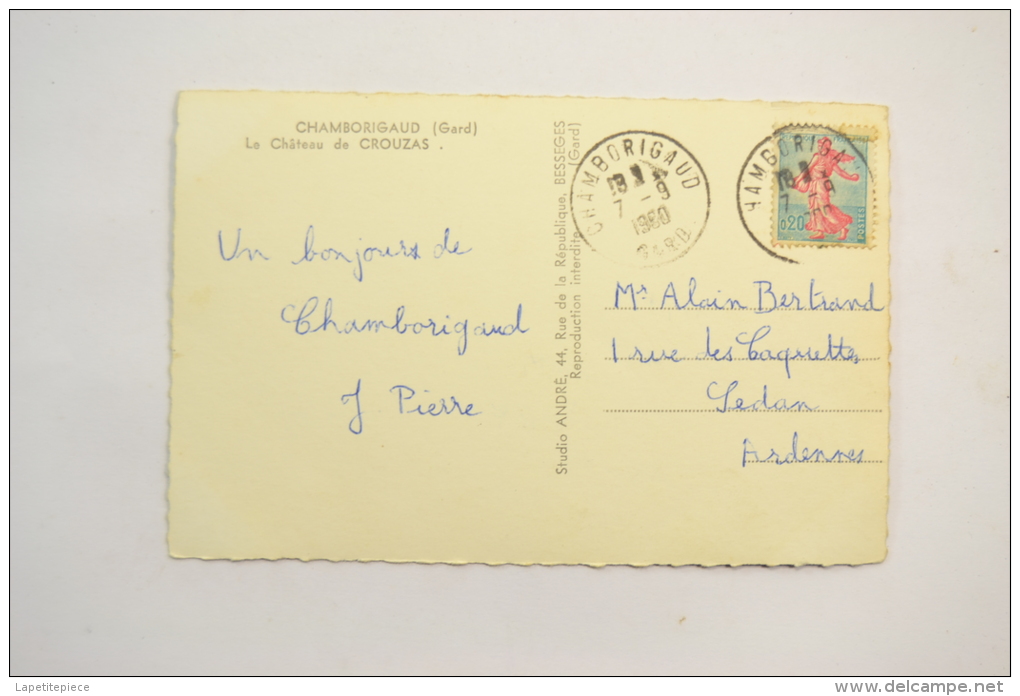 CHAMBORIGAUD (Gard)
Le Château de CROUZAS .
Un bonjours de
Chamborigaud
J Pierre
Studio ANDRÉ, 44, Rue de la République, BESSEGES
Reproduction interdite (Gard)
CHAMBORIGAUD
18 H
7 - 9
1960
GARD
HAMBORIGA
18 H
7 - 9
0,20
POSTES
Mr Alain Bertrand
1 rue des Caquettes
Sedan
Ardennes
Lapetitepiece
www.delcampe.net